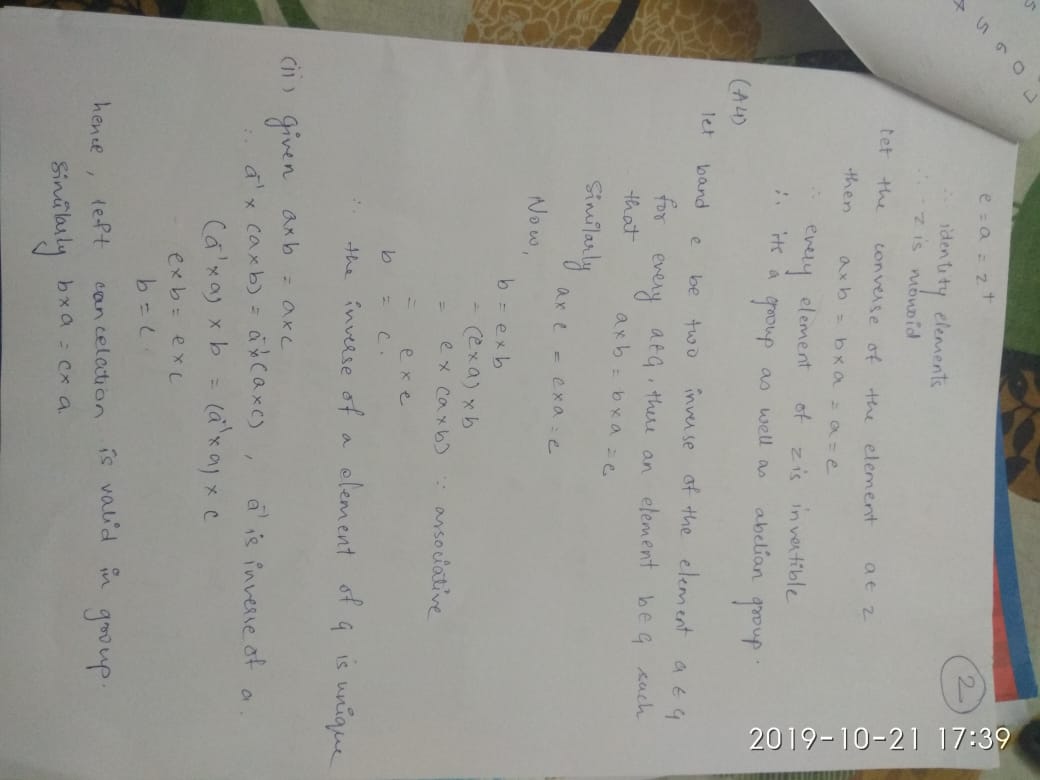 5
6
0
7
5
x
2019-10-21 17:39
2
e = a = z⁺
∴ identity elements
∴ z is monoid
let the converse of the element a ∈ z
then a×b = b×a = a = e
∴ every element of z is invertible
∴ its a group as well as abelian group.
(A4)
let b and c be two inverse of the element a ∈ G
for every a∈G, there an element b∈G such
that a×b = b×a = e
Similarly
a×c = c×a = e
Now,
b = e×b
= (c×a)×b
= c×(a×b) ∵ associative
= c×e
b = c.
∴ the inverse of a element of G is unique
(ii) given a×b = a×c
∴ a⁻¹×(a×b) = a⁻¹×(a×c), a⁻¹ is inverse of a.
(a⁻¹×a)×b = (a⁻¹×a)×c
e×b = e×c
b = c.
hence, left cancelation is valid in group.
Similarly b×a = c×a.